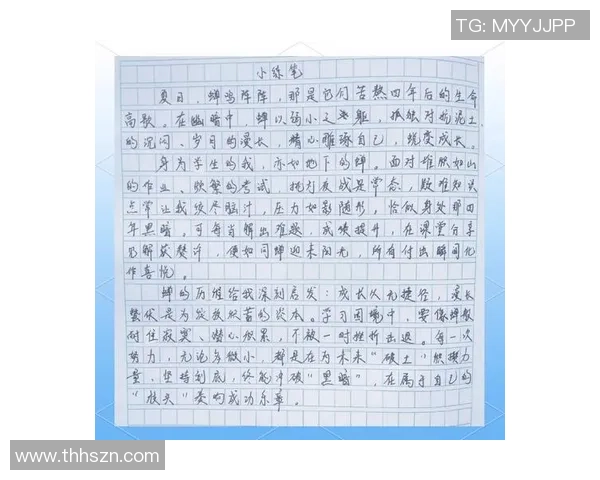 TG: MYYJJPP
小练笔
夏日，蝉鸣阵阵，那是它们苦熬四年后的生命
高歌。在幽暗中，蝉以弱小之躯，孤独对抗泥土
的沉闷、岁月的漫长，精心雕琢自己，蜕变成长。
身为学生的我，亦如地下的蝉。面对堆积如山
的作业、频繁的考试，挑灯夜战是常态，疑难知识
点常让我绞尽脑汁，压力如影随形，恰似身处那四
年黑暗。可每当解出难题，成绩提升，在课堂分享
见解获赞许，便如同蝉迎来阳光，所有付出瞬间化
作喜悦。
蝉的历程给我深刻启发：成长从无捷径，漫长
蛰伏是为绽放积蓄的资本。学习困境中，要像蝉般
耐住寂寞、潜心积累，不被一时挫折击退。每一次
努力，无论多微小，都是在为未来“破土”积攒力
量，坚持到底，终能冲破“黑暗”，在属于自己的
“枝头”奏响成功乐章。
www.thhszn.com